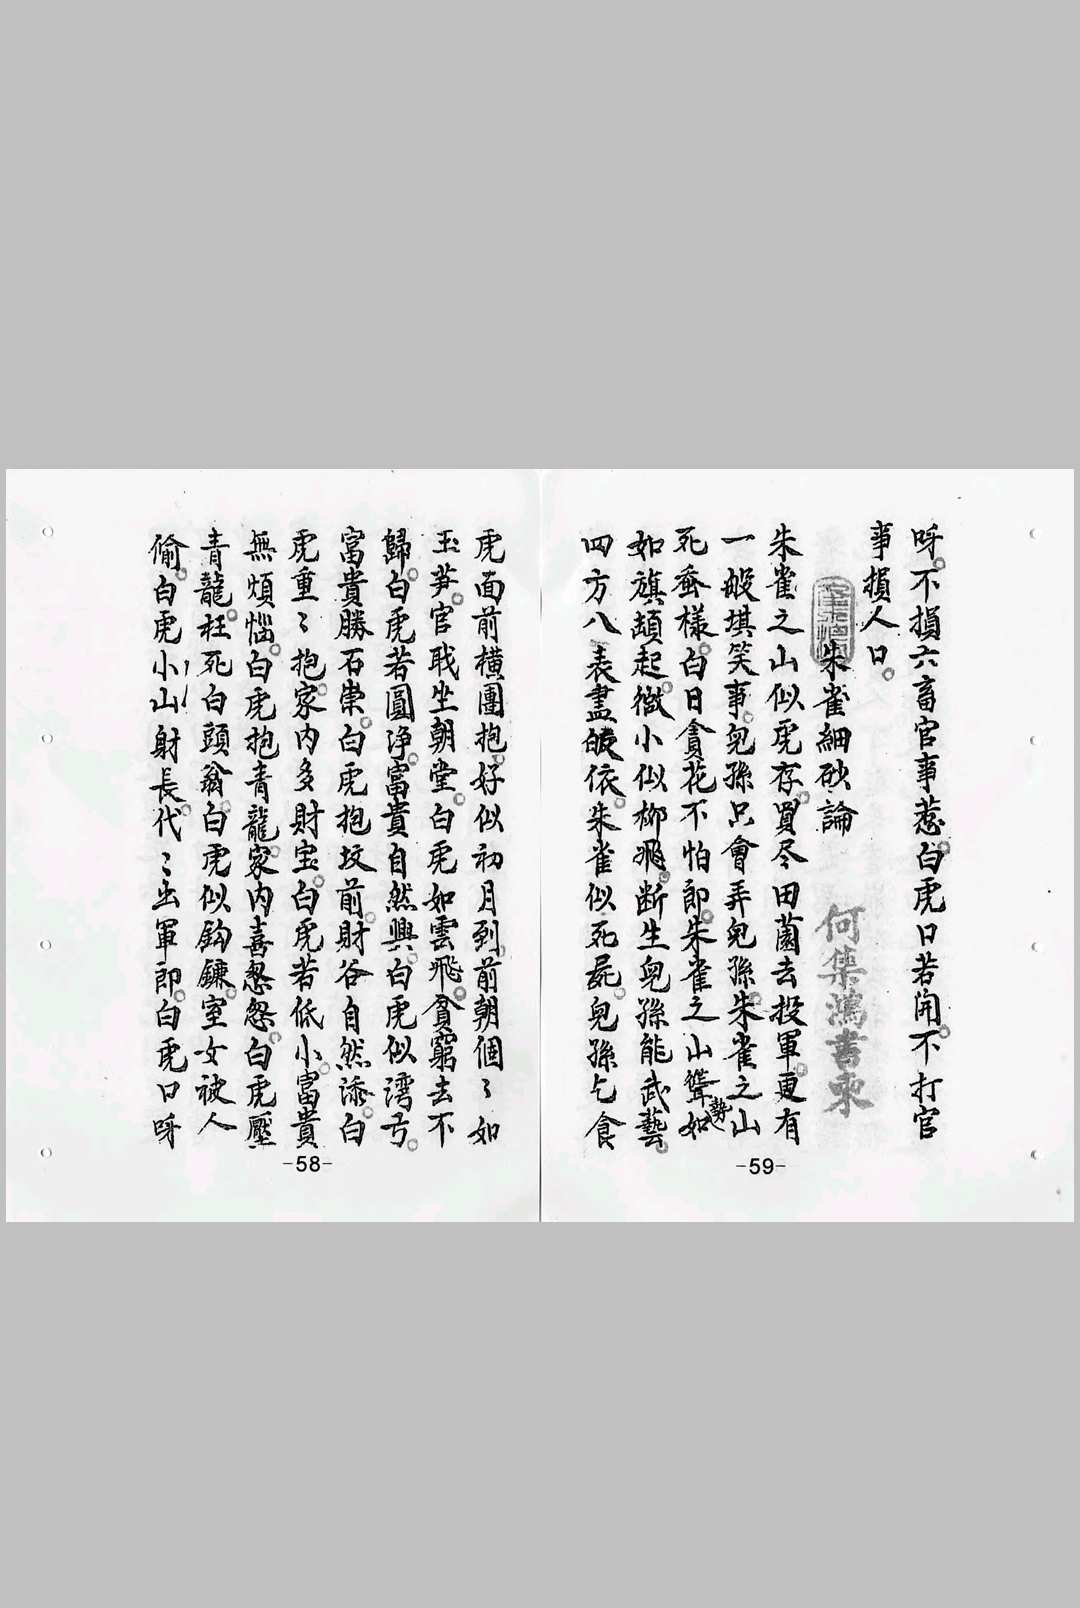 虎面前橫團抱好似初月到前朝個〻如
玉笋官戢坐朝堂白虎如雲飛貧窮去不
歸白虎若圓净富貴自然興白虎似湾弓
富貴勝石崇白虎抱坟前財谷自然添白
虎重〻抱家內多財宝白虎若低小富貴
無煩惱白虎抱青龍家內喜怱怱白虎壓
青龍枉死白頭翁白虎似鈎鐮室女被人
偷白虎小山射長代〻出軍郎白虎口呀
-58-
呀不損六畜官事惹白虎口若開不打官
事損人口
朱雀細砂論
何集鴻書
朱雀之山似虎存買尽田薗去投軍更有
一般堪笑事兒孫只會弄兒孫朱雀之山
死蚕樣白日貪花不怕郎朱雀之山聳勢如
如旗頡起微小似柳飛断生兒孫能武藝
四方八表盡皈依朱雀似死屍兒孫乞食
-59-